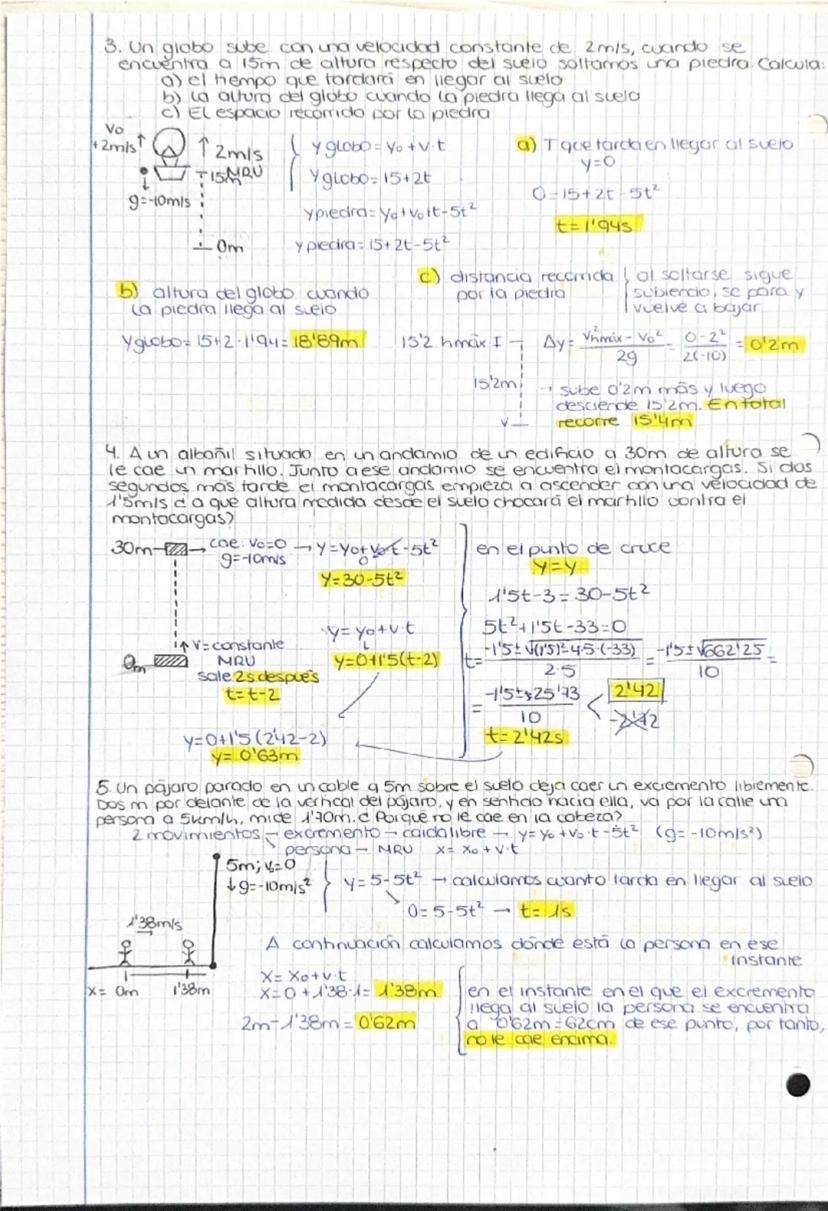 3. Un globo sube con una velocidad constante de 2m/s, cuando se
encuentra a 15m de altura respecto del suelo soltamos una piedra. Calcula:
a) el tiempo que tardará en llegar al suelo
b) la altura del globo cuando la piedra llega al suelo
c) El espacio recorrido por la piedra
Vo
+2m/s ↑
↑ 2m/s
MRU
15m
g=-10m/s
0m
y globo = yo + v·t
y globo = 15+2t
y piedra = yo+vo·t-5t²
y piedra = 15+2t-5t²
a) T que tarda en llegar al suelo
y=0
0=15+2t-5t²
t=1'94s
b) altura del globo cuando
la piedra llega al suelo
y globo = 15+2·1'94 = 18'89m
c) distancia recorrida
por la piedra
al soltarse sigue
subiendo, se para y
vuelve a bajar
15'2 hmáx
15'2m
Δy = V²hmáx - Vo² / 2g = 0-2² / 2(-10) = 0'2m
→ sube 0'2m más y luego
desciende 15'2m. En total
recorre 15'4m
4. A un albañil situado en un andamio de un edificio a 30m de altura se
le cae un martillo. Junto a ese andamio se encuentra el montacargas. Si dos
segundos más tarde el montacargas empieza a ascender con una velocidad de
1'5m/s ¿a que altura medida desde el suelo chocará el martillo contra el
montacargas?
30m → cae Vo=0 → y=yo+vot-5t²
g=-10m/s
0
y=30-5t²
↑ v=constante
MRU
0m
sale 2s después
t=t-2
y=yo+v·t
y=0+1'5(t-2)
y=0+1'5(2'42-2)
y=0'63m
en el punto de cruce
y=y
1'5t-3=30-5t²
5t²+1'5t-33=0
t= -1'5±√(1'5)²-4·5·(-33) / 2·5 = -1'5±√662'25 / 10 =
= -1'5±25'73 / 10 < 2'42
t=2'42s
5. Un pájaro parado en un cable a 5m sobre el suelo deja caer un excremento libremente.
Dos m por delante de la vertical del pájaro, y en sentido hacia ella, va por la calle una
persona a 5km/h, mide 1'70m. ¿Por qué no le cae en la cabeza?
2 movimientos → excremento → caída libre → y=yo+vo·t-5t² (g=-10m/s²)
persona → MRU x=xo+v·t
5m; Vo=0
↓g=-10m/s²
y=5-5t² → calculamos cuanto tarda en llegar al suelo
0=5-5t² → t=1s
1'38m/s
x= 0m 1'38m
A continuación calculamos dónde está la persona en ese
instante
x=xo+v·t
x=0+1'38·1=1'38m
2m-1'38m=0'62m
en el instante en el que el excremento
llega al suelo la persona se encuentra
a 0'62m=62cm de ese punto, por tanto,
no le cae encima.